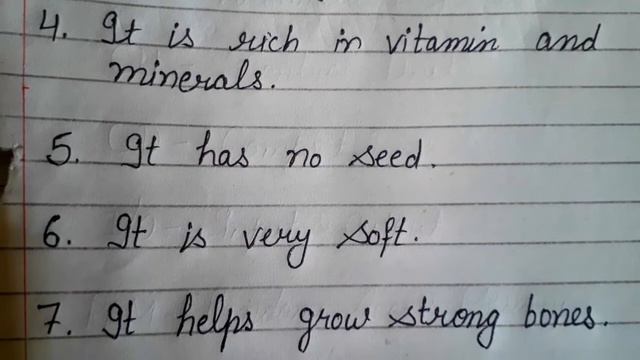 4. It is rich in vitamin and
minerals.
5. It has no seed.
6. It is very soft.
7. It helps grow strong bones.